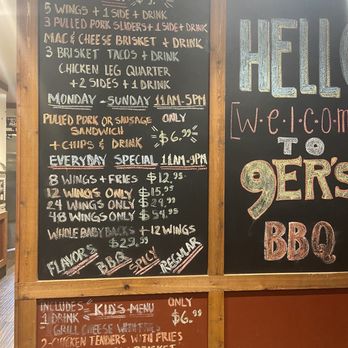 5 WINGS + 1 SIDE + DRINK
3 PULLED PORK SLIDERS + 1 SIDE + DRINK
MAC & CHEESE BRISKET + DRINK
3 BRISKET TACOS + DRINK
CHICKEN LEG QUARTER
+ 2 SIDES + 1 DRINK
MONDAY - SUNDAY 11AM-3PM
PULLED PORK OR SAUSAGE ONLY
SANDWICH $6.99
+ CHIPS & DRINK
EVERYDAY SPECIAL 11AM-9PM
8 WINGS + FRIES $12.95
12 WINGS ONLY $15.95
24 WINGS ONLY $29.99
48 WINGS ONLY $54.95
WHOLE BABY BACKS + 12 WINGS
$29.99
FLAVORS BBQ SPICY REGULAR
INCLUDES KID'S MENU ONLY
1 DRINK $6.99
GRILL CHEESE WITH FRIES
2-CHICKEN TENDERS WITH FRIES
BRISKET
HELLO
[W•e•l•c•o•m
TO
9ER'S
BBQ